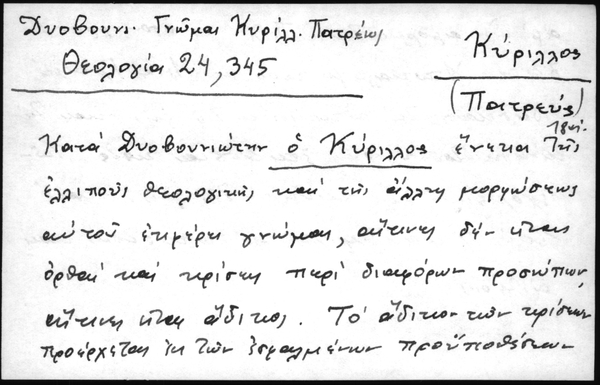 Δυοβουνι. Γνῶμαι Κυρίλλ. Πατρέως
Θεολογία 24, 345
Κύριλλος
(Πατρεύς)
18ος αἰ.
Κατά Δυοβουνιώτην ὁ Κύριλλος ἕνεκα τῆς
ἐλλιποῦς θεολογικῆς καί τῆς ἄλλης μορφώσεως
αὐτοῦ ἐκφέρει γνώμας, αἵτινες δέν εἶναι
ὀρθαί καί κρίσεις περί διαφόρων προσώπων,
αἵτινες εἶναι ἄδικοι. Τό ἄδικον τῶν κρίσεων
προέρχεται ἐκ τῶν ἐσφαλμένων προϋποθέσεων